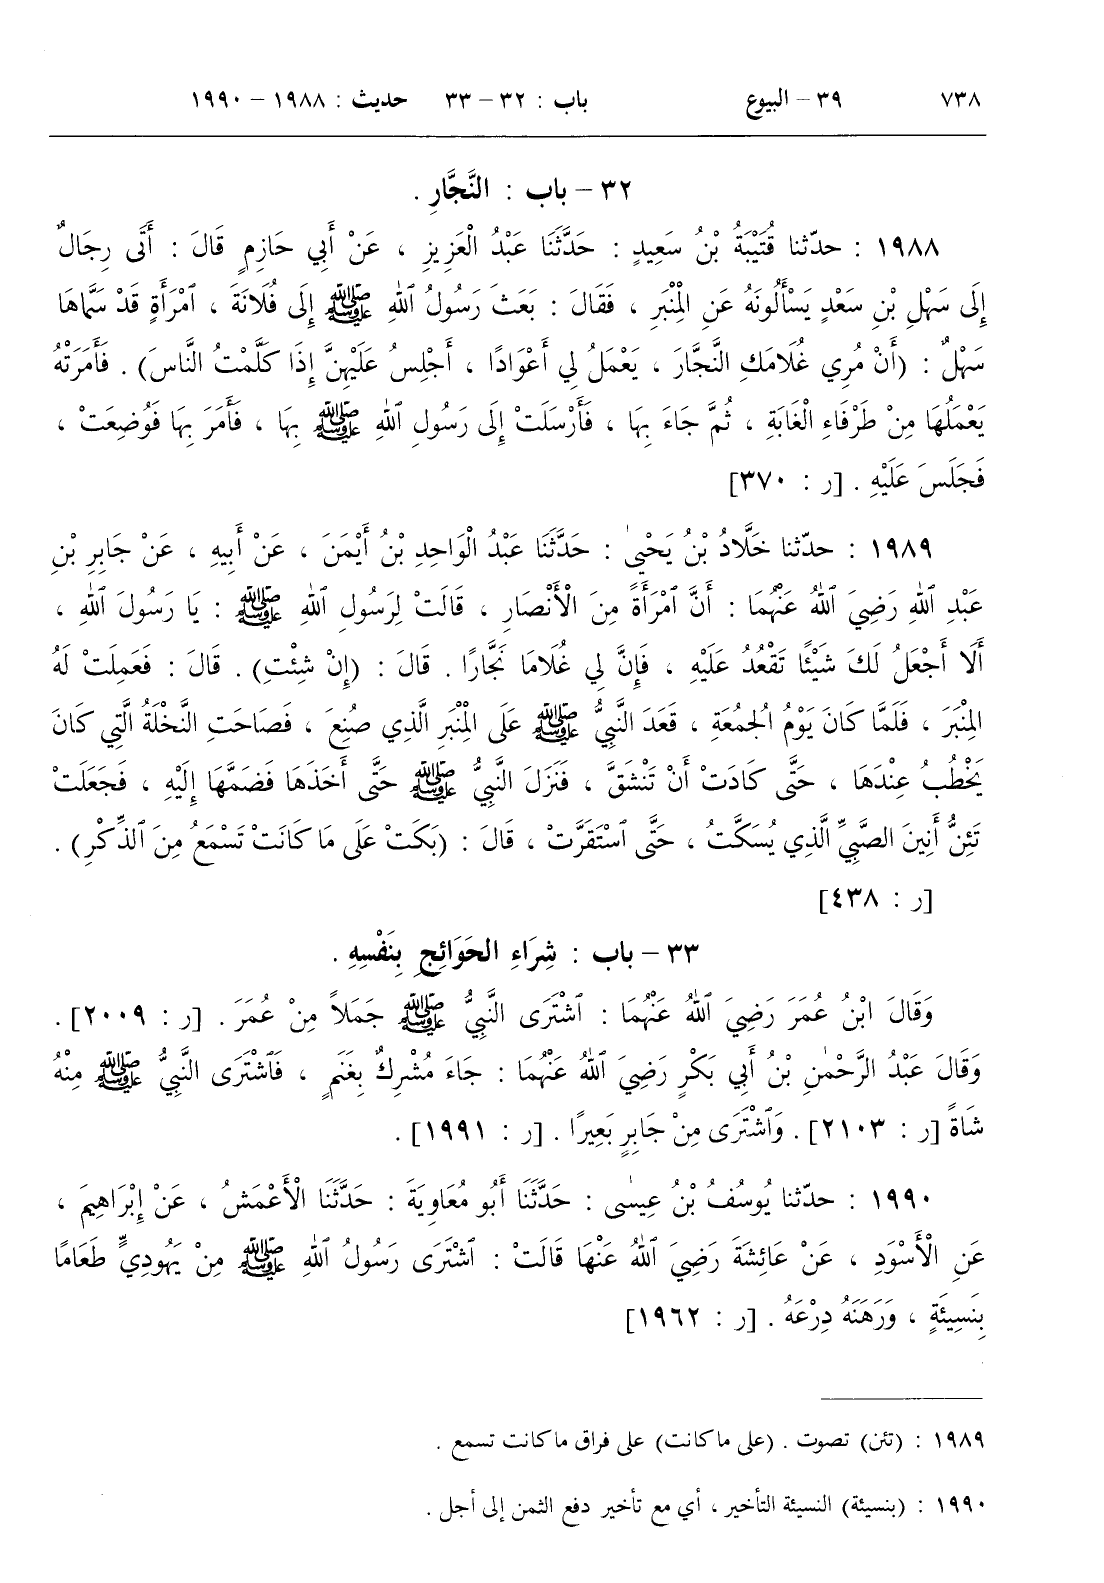 ٧٣٨ ٣٩ – البيوع باب : ٣٢ – ٣٣ حديث : ١٩٨٨ – ١٩٩٠
٣٢ – باب : النَّجَّارِ .
١٩٨٨ : حدّثنا قُتَيْبَةُ بْنُ سَعِيدٍ : حَدَّثَنَا عَبْدُ الْعَزِيزِ ، عَنْ أَبِي حَازِمٍ قَالَ : أَتَى رِجَالٌ
إِلَى سَهْلِ بْنِ سَعْدٍ يَسْأَلُونَهُ عَنِ الْمِنْبَرِ ، فَقَالَ : بَعَثَ رَسُولُ ٱللهِ ﷺ إِلَى فُلَانَةَ ، ٱمْرَأَةٍ قَدْ سَمَّاهَا
سَهْلٌ : (أَنْ مُرِي غُلَامَكِ النَّجَّارَ ، يَعْمَلُ لِي أَعْوَادًا ، أَجْلِسُ عَلَيْهِنَّ إِذَا كَلَّمْتُ النَّاسَ) . فَأَمَرَتْهُ
يَعْمَلُهَا مِنْ طَرْفَاءِ الْغَابَةِ ، ثُمَّ جَاءَ بِهَا ، فَأَرْسَلَتْ إِلَى رَسُولِ ٱللهِ ﷺ بِهَا ، فَأَمَرَ بِهَا فَوُضِعَتْ ،
فَجَلَسَ عَلَيْهِ . [ر : ٣٧٠]
١٩٨٩ : حدّثنا خَلَّادُ بْنُ يَحْيىٰ : حَدَّثَنَا عَبْدُ الْوَاحِدِ بْنُ أَيْمَنَ ، عَنْ أَبِيهِ ، عَنْ جَابِرِ بْنِ
عَبْدِ ٱللهِ رَضِيَ ٱللهُ عَنْهُمَا : أَنَّ ٱمْرَأَةً مِنَ الْأَنْصَارِ ، قَالَتْ لِرَسُولِ ٱللهِ ﷺ : يَا رَسُولَ ٱللهِ ،
أَلَا أَجْعَلُ لَكَ شَيْئًا تَقْعُدُ عَلَيْهِ ، فَإِنَّ لِي غُلَامًا نَجَّارًا . قَالَ : (إِنْ شِئْتِ) . قَالَ : فَعَمِلَتْ لَهُ
الْمِنْبَرَ ، فَلَمَّا كَانَ يَوْمُ الْجُمُعَةِ ، قَعَدَ النَّبِيُّ ﷺ عَلَى الْمِنْبَرِ الَّذِي صُنِعَ ، فَصَاحَتِ النَّخْلَةُ الَّتِي كَانَ
يَخْطُبُ عِنْدَهَا ، حَتَّى كَادَتْ أَنْ تَنْشَقَّ ، فَنَزَلَ النَّبِيُّ ﷺ حَتَّى أَخَذَهَا فَضَمَّهَا إِلَيْهِ ، فَجَعَلَتْ
تَئِنُّ أَنِينَ الصَّبِيِّ الَّذِي يُسَكَّتُ ، حَتَّى ٱسْتَقَرَّتْ ، قَالَ : (بَكَتْ عَلَى مَا كَانَتْ تَسْمَعُ مِنَ ٱلذِّكْرِ) .
[ر : ٤٣٨]
٣٣ – باب : شِرَاءِ الحَوَائِجِ بِنَفْسِهِ .
وَقَالَ ابْنُ عُمَرَ رَضِيَ ٱللهُ عَنْهُمَا : ٱشْتَرَى النَّبِيُّ ﷺ جَمَلاً مِنْ عُمَرَ . [ر : ٢٠٠٩] .
وَقَالَ عَبْدُ الرَّحْمٰنِ بْنُ أَبِي بَكْرٍ رَضِيَ ٱللهُ عَنْهُمَا : جَاءَ مُشْرِكٌ بِغَنَمٍ ، فَٱشْتَرَى النَّبِيُّ ﷺ مِنْهُ
شَاةً [ر : ٢١٠٣] . وَٱشْتَرَى مِنْ جَابِرٍ بَعِيرًا . [ر : ١٩٩١] .
١٩٩٠ : حدّثنا يُوسُفُ بْنُ عِيسٰى : حَدَّثَنَا أَبُو مُعَاوِيَةَ : حَدَّثَنَا الْأَعْمَشُ ، عَنْ إِبْرَاهِيمَ ،
عَنِ الْأَسْوَدِ ، عَنْ عَائِشَةَ رَضِيَ ٱللهُ عَنْهَا قَالَتْ : ٱشْتَرَى رَسُولُ ٱللهِ ﷺ مِنْ يَهُودِيٍّ طَعَامًا
بِنَسِيئَةٍ ، وَرَهَنَهُ دِرْعَهُ . [ر : ١٩٦٢]
١٩٨٩ : (تئن) تصوت . (على ما كانت) على فراق ما كانت تسمع .
١٩٩٠ : (بنسيئة) النسيئة التأخير ، أي مع تأخير دفع الثمن إلى أجل .